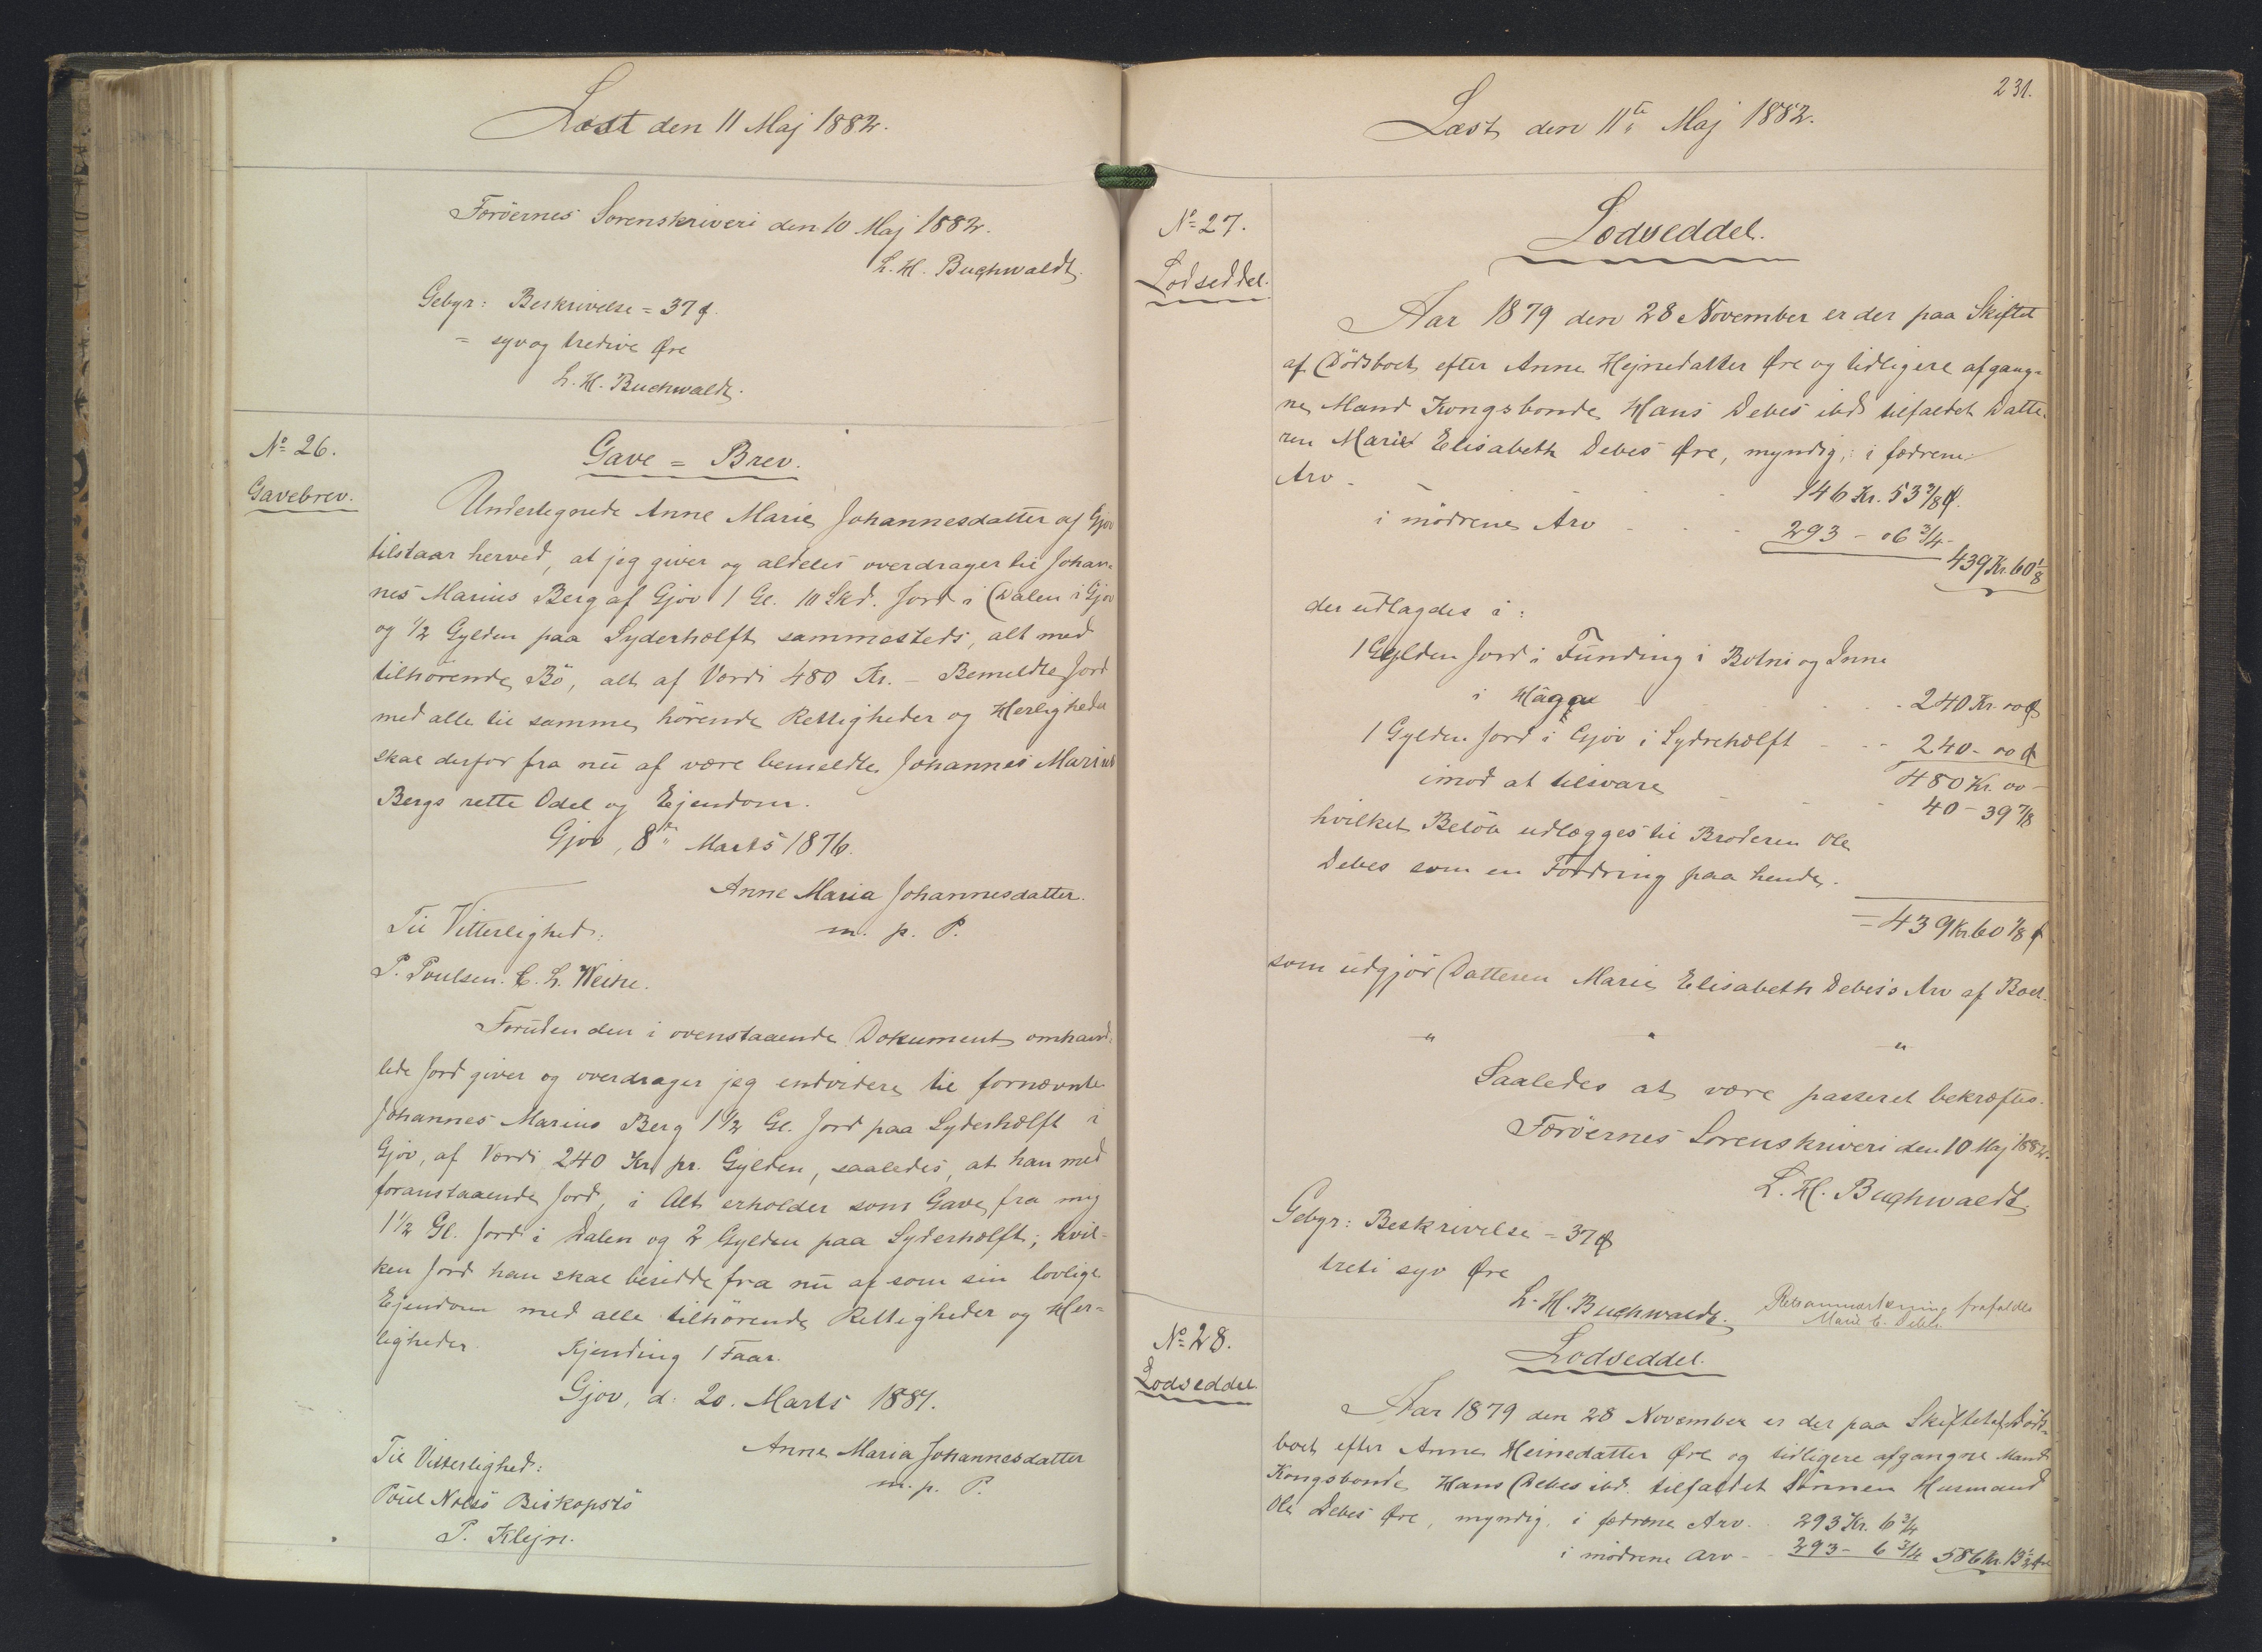 Læst den 11 Maj 1882.
Færöernes Sorenskriveri den 10 Maj 1882.
L. H. Buchwaldt.
Gebyr: Beskrivelse = 37 Ø.
= syv og tredive Øre
L. H. Buchwaldt.
No 26.
Gavebrev.
Gave = Brev.
Undertegnede Anne Marie Johannesdatter af Gjov
tilstaar herved, at jeg giver og aldeles overdrager til Johan-
nes Marius Berg af Gjov 1 Gl. 10 Skd. Jord i Dalen i Gjov
og 1/2 Gylden paa Syderhælft sammesteds, alt med
tilhörende Bö, alt af Værdi 480 Kr. - Bemeldte Jord
med alle til samme hörende Rettigheder og Herligheder
skal derfor fra nu af være bemeldte Johannes Marius
Bergs rette Odel og Ejendom.
Gjov, 8de Marts 1876.
Anne Maria Johannesdatter.
m. p. P.
Til Vitterlighed:
P. Poulsen. C. L. Weihe.
Foruden den i ovenstaaende Dokument omhand-
lede Jord giver og overdrager jeg endvidere til fornævnte
Johannes Marius Berg 1 1/2 Gl. Jord paa Syderhælft i
Gjov, af Værdi 240 Kr. pr. Gylden, saaledes, at han med
foranstaaende Jord, i Alt erholder som Gave fra mig
1 1/2 Gl. Jord i Dalen og 2 Gylden paa Syderhælft; hvil-
ken Jord han skal besidde fra nu af som sin lovlige
Ejendom med alle tilhörende Rettigheder og Her-
ligheder. Kjending 1 Faar.
Gjov, d. 20. Marts 1881.
Anne Maria Johannesdatter
m. p. P.
Til Vitterlighed:
Poul Nolsö Biskopstö
P. Klejn.
231.
Læst den 11te Maj 1882.
No 27.
Lodseddel.
Lodseddel.
Aar 1879 den 28 November er der paa Skiftet
af Dödsboet efter Anne Hejnedatter Øre og tidligere afgang-
ne Mand Kongsbonde Hans Debes ibd. tilfaldet Datte-
ren Marie Elisabeth Debes Øre, myndig, i fædrene
Arv - - - 146 Kr. 53 3/8 Ø.
i mödrene Arv - - - 293 - 06 3/4 -
439 Kr. 60 1/8
der udlagdes i:
1 Gylden Jord i Funding i Botni og Inne
i Haga - - - 240 Kr. 00 Ø
1 Gylden Jord i Gjov i Sydrehælft - - - 240 - 00 Ø
480 Kr. 00 -
imod at tilsvare - - - 40 - 39 7/8
hvilket Belöb udlægges til Broderen Ole
Debes som en Fordring paa hende.
= 439 Kr 60 1/8 Ø
som udgjör Datteren Marie Elisabeth Debes's Arv af Boet.
" " "
Saaledes at være passeret bekræftes.
Færöernes Sorenskriveri den 10 Maj 1882.
L. H. Buchwaldt.
Gebyr: Beskrivelse = 37 Ø
treti syv Øre
L. H. Buchwaldt.
Retsanmærkning frafaldes
Marie E. Debes
No 28.
Lodseddel.
Lodseddel.
Aar 1879 den 28 November er der paa Skiftet af Döds-
boet efter Anne Heinedatter Øre og tidligere afgangne Mand
Kongsbonde Hans Debes ibd. tilfaldet Sönnen Husmand
Ole Debes Øre, myndig, i fædrene Arv - 293 Kr. 6 3/4
i mödrene Arv - 293 - 6 3/4 586 Kr. 13 1/2 Øre